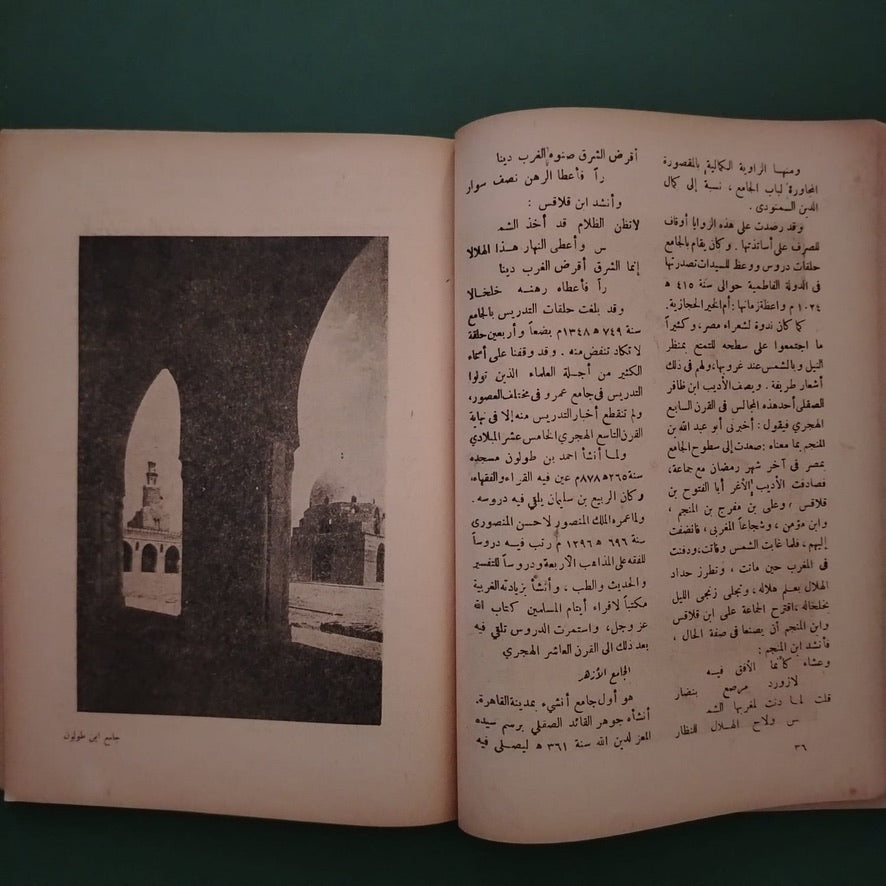 ومنها الزاوية الكمالية بالمقصورة
المجاورة لباب الجامع ، نسبة إلى كمال
الدين السمنودى .
وقد رصدت على هذه الزوايا أوقاف
للصرف على أساتذتها . وكان يقام بالجامع
حلقات دروس ووعظ للسيدات تصدرتها
فى الدولة الفاطمية حوالى سنة ٤١٥ ه
١٠٢٤ م واعظة زمانها : أم الخير الحجازية .
كما كان ندوة لشعراء مصر ، وكثيراً
ما اجتمعوا على سطحه للتمتع بمنظر
النيل وبالشمس عند غروبها ، ولهم فى ذلك
أشعار طريفة . ويصف الأديب ابن ظافر
الصقلى أحد هذه المجالس فى القرن السابع
الهجري فيقول : أخبرنى أبو عبد الله بن
المنجم بما معناه : صعدت إلى سطوح الجامع
بمصر فى آخر شهر رمضان مع جماعة ،
فصادفت الأديب الأغر أبا الفتوح بن
قلاقس ، وعلى بن مفرج بن المنجم ،
وابن مؤمن ، وشجاعاً المغربى ، فانضفت
إليهم ، فلما غابت الشمس وفاتت ، ودفنت
فى المغرب حين ماتت ، وتطرز حداد
الهلال بعلم هلاله ، وتجلى زنجى الليل
بخلخاله ، اقترح الجماعة على ابن قلاقس
وابن المنجم أن يصنعا فى صفة الحال ،
فأنشد ابن المنجم :
وعشاء كأنما الأفق فيه
لازورد مرصع بنضار
قلت لما دنت لمغربها الشم
س ولاح الهلال للنظار
٣٦
أقرض الشرق صنوه الغرب دينا
راً فأعطا الرهن نصف سوار
وأنشد ابن قلاقس :
لاتظن الظلام قد أخذ الشم
س وأعطى النهار هذا الهلالا
إنما الشرق أقرض الغرب دينا
راً فأعطاه رهنه خلخالا
وقد بلغت حلقات التدريس بالجامع
سنة ٧٤٩ ه ١٣٤٨م بضعاً وأربعين حلقة
لا تكاد تنفض منه . وقد وقفنا على أسماء
الكثير من أجلة العلماء الذين تولوا
التدريس فى جامع عمرو فى مختلف العصور ،
ولم تنقطع أخبار التدريس منه إلا فى نهاية
القرن التاسع الهجري الخامس عشر الميلادي
ولما أنشأ احمد بن طولون مسجده
سنة ٢٦٥ ه ٨٧٨م عين فيه القراء والفقهاء ،
وكان الربيع بن سليمان يلقي فيه دروسه .
ولما عمره الملك المنصور لاحسن المنصورى
سنة ٦٩٦ ه ١٢٩٦ م رتب فيه دروساً
للفقه على المذاهب الأربعة ودروساً للتفسير
والحديث والطب ، وأنشأ بزيادته الغربية
مكتباً لاقراء أيتام المسلمين كتاب الله
عز وجل ، واستمرت الدروس تلقي فيه
بعد ذلك الى القرن العاشر الهجري
الجامع الأزهر
هو أول جامع أنشيء بمدينة القاهرة .
أنشأه جوهر القائد الصقلي برسم سيده
المعز لدين الله سنة ٣٦١ ه ليصلى فيه
جامع ابن طولون